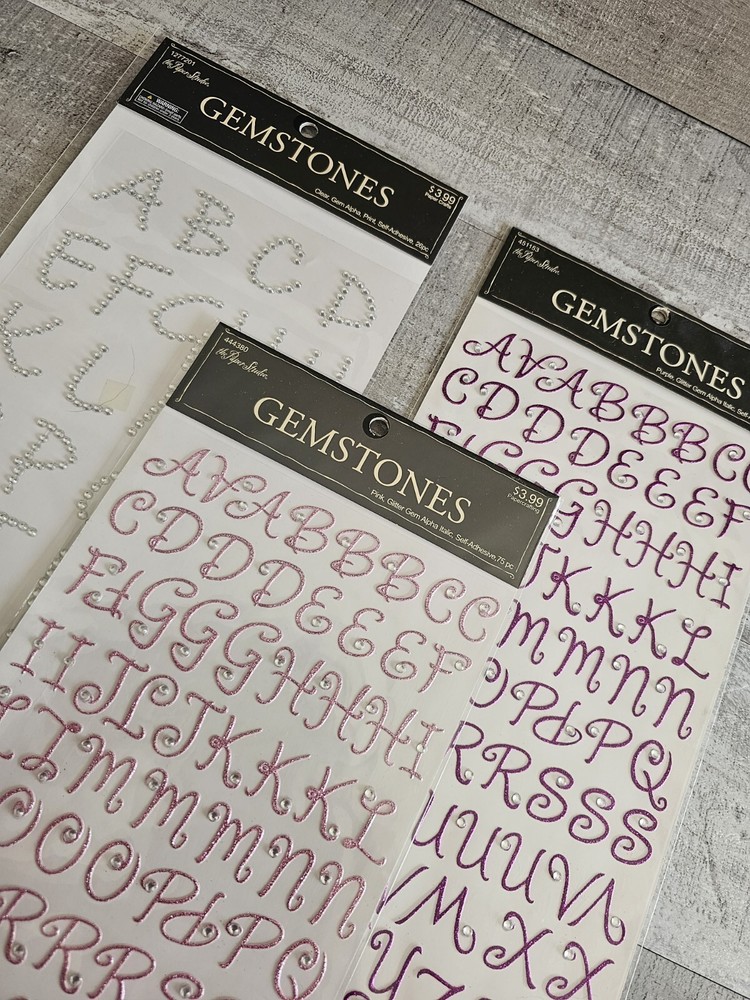 1277201
the Paper Studio.
WARNING:
GEMSTONES
$3.99
Paper Crafts
Clear, Gem Alpha, Print, Self-Adhesive, 26pc.
A B C D
E F G
K L
P
451163
the Paper Studio.
GEMSTONES
Purple, Glitter Gem Alpha Italic, Self-
A A A B B B C C
C D D D E E E F
F F G G G H H H I
J K K K L
M M N N
O P P P Q
R R S S S
U U U V V
V M X X
Y Z
444380
the Paper Studio.
GEMSTONES
$3.99
Papercrafting
Pink, Glitter Gem Alpha Italic, Self-Adhesive, 75 pc.
A A A B B B C C
C D D D E E E F
F F G G G H H H I
I I J J J K K K L
L L M M M N N N
O O O P P P Q
R R R S S